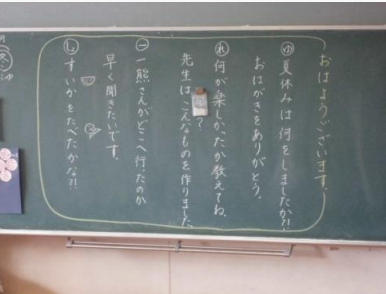 おはようございます。
ゆ 夏休みは何をしましたか?!
おはがきをありがとう。
れ 何が楽しかったか教えてね。
先生はこんなものを作りました
?
一 一熊さんがどこへ行ったのか
早く聞きたいです。
し すいかをたべたかな?!